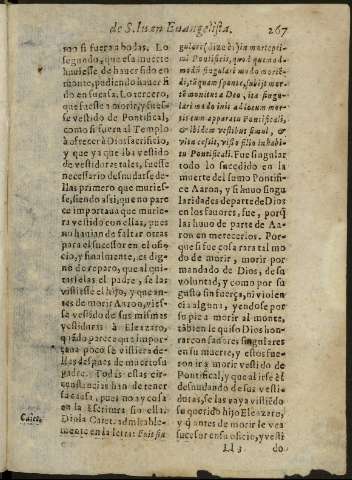 de S. Iuan Euangelista. 267
ron si fueran bodas. Lo
segundo, que esta muerte
huuiesse de hauer sido en
monte, pudiendo hauer si
do en su casa. Lo tercero,
que fuesse a morir, y fues-
se vestido de Pontifical,
como si fuera al Templo
à ofrecer à Dios sacrificio,
y que ya que iba vestido
de vestidos tales, fuesse
necesario desnudarse de-
llas primero que muries-
se, siendo assi, que no pare
ce importaua que murie-
ra vestido con ellas, pues
no hauian de faltar otras
para el sucessor en el ofi-
cio, y finalmente, es dig-
no de reparo, que al qui-
tarselas el padre, se las
vistiesse el hijo, y que an-
tes de morir Aaron, viesse
vestido de sus mismas
vestiduras à Eleazaro,
quãdo parece que impor-
taua poco se vistiera de-
llas despues de muerto su
padre. Todas estas cir-
cunstancias han de tener
su causa, pues no ay cosa
en la Escritura sin ella.
Diola Caiet. admirable-
mente en la letra: Fuit sin
Caiet.
gulare (dize èl) in morte pri-
mi Pontificis, quod quemad-
modũ singulari modo moritĕ-
di, tãquam sponte, subijt mor-
tẽ monitus a Deo, ita singu-
lari modo iuit ad locum mor-
tis cum apparatu Pontificali,
& ibidem vestibus simul, &
vita cessit, viso filio in habi-
tu Pontificali. Fue singular
todo lo sucedido en la
muerte del sumo Pontifi-
ce Aaron, y si huuo singu
laridades de parte de Dios
en los fauores, fue, porq̃
las huuo de parte de Aa-
ron en merecerlos. Por-
que si fue cosa rara tal mo
do de morir, morir por
mandado de Dios, de su
voluntad, y como por su
gusto sin fuerça, ni violen
cia alguna, yendose por
su pie a morir al monte,
tãbien le quiso Dios hon-
rar con fauores singulares
en su muerte, y estos fue-
ron ir a morir vestido de
Pontifical, y que al irse el
desnudando de sus vesti-
duras, se las vaya vistiẽdo
su querido hijo Eleazaro,
y q̃ antes de morir le vea
sucesor en su oficio, y vesti
Ll 3 do